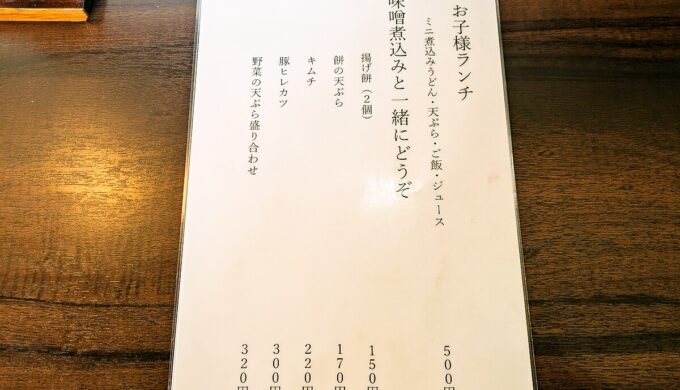 お子様ランチ
ミニ煮込みうどん・天ぷら・ご飯・ジュース
500円
味噌煮込みと一緒にどうぞ
揚げ餅（2個）
150円
餅の天ぷら
170円
キムチ
220円
豚ヒレカツ
300円
野菜の天ぷら盛り合わせ
320円